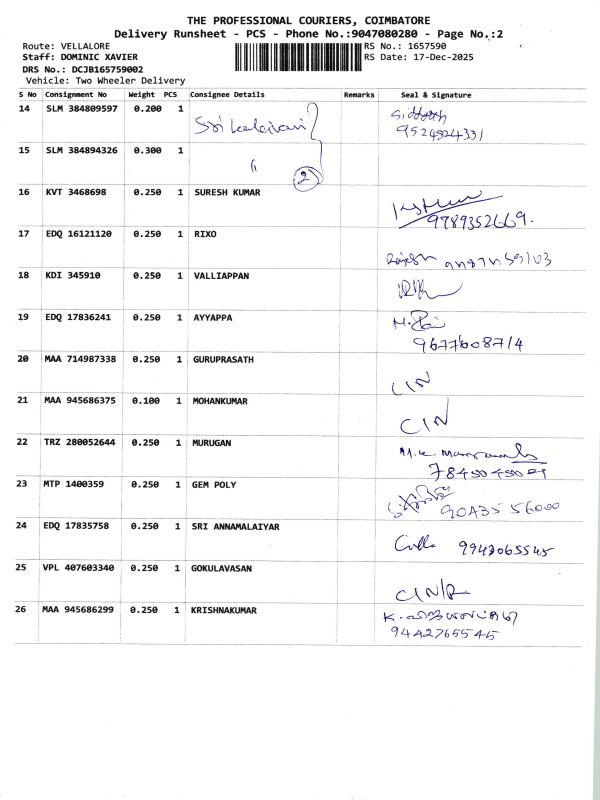 THE PROFESSIONAL COURIERS, COIMBATORE
Delivery Runsheet - PCS - Phone No.:9047080280 - Page No.:2
Route: VELLALORE RS No.: 1657590
Staff: DOMINIC XAVIER RS Date: 17-Dec-2025
DRS No.: DCJB165759002
Vehicle: Two Wheeler Delivery
S No Consignment No Weight PCS Consignee Details Remarks Seal & Signature
14 SLM 384809597 0.200 1 Sri kalaivani Siddharth
9524924331
15 SLM 384894326 0.300 1 "
2
16 KVT 3468698 0.250 1 SURESH KUMAR
9789352669.
17 EDQ 16121120 0.250 1 RIXO
18 KDI 345910 0.250 1 VALLIAPPAN
19 EDQ 17836241 0.250 1 AYYAPPA
9677608714
20 MAA 714987338 0.250 1 GURUPRASATH CIN
21 MAA 945686375 0.100 1 MOHANKUMAR CIN
22 TRZ 280052644 0.250 1 MURUGAN M.K.
23 MTP 1400359 0.250 1 GEM POLY
90435 56000
24 EDQ 17835758 0.250 1 SRI ANNAMALAIYAR 9942065545
25 VPL 407603340 0.250 1 GOKULAVASAN CIN/R
26 MAA 945686299 0.250 1 KRISHNAKUMAR
9442765545